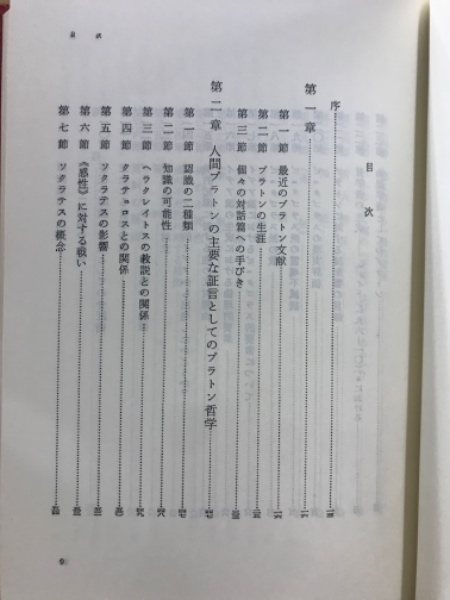 目次
目次
序
第一章
第一節 最近のプラトン文献
第二節 プラトンの生涯
第三節 個々の対話篇への手びき
第二章 人間プラトンの主要な証言としてのプラトン哲学
第一節 認識の二種類
第二節 知識の可能性
第三節 ヘラクレイトスの教説との関係
第四節 クラテュロスとの関係
第五節 ソクラテスの影響
第六節 《感性》に対する戦い
第七節 ソクラテスの概念
9